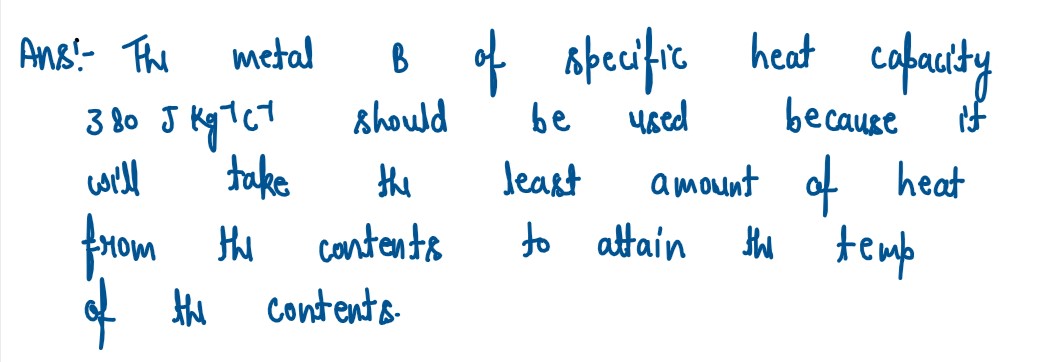 Ans:- The metal B of specific heat capacity
380 J Kg⁻¹C⁻¹ should be used because it
will take the least amount of heat
from the contents to attain the temp
of the contents.